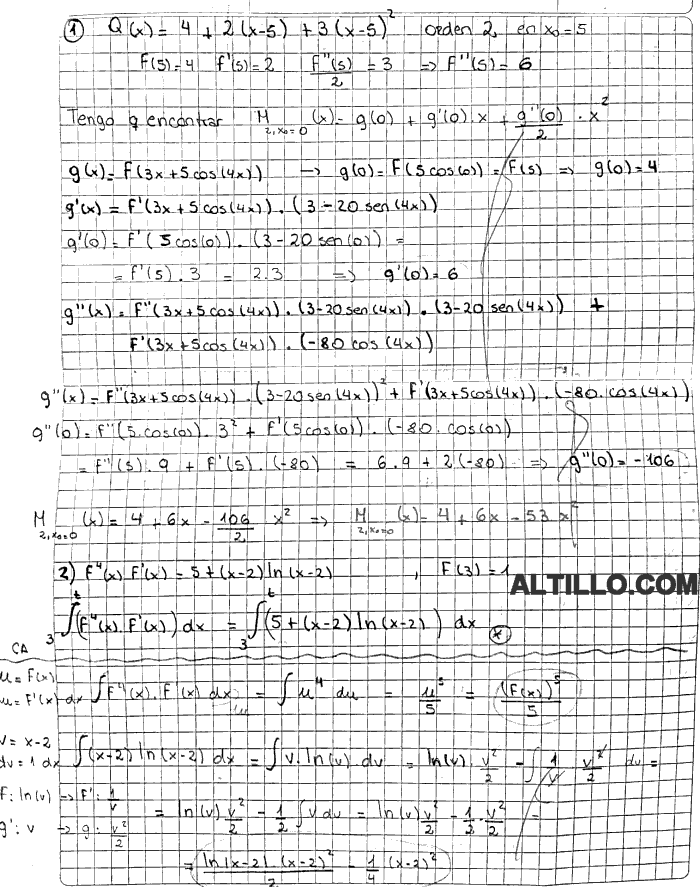 ① Q(x) = 4 + 2(x-5) + 3(x-5)² orden 2, en x₀=5
F(5)=4 F'(5)=2 F''(5)/2 = 3 ⇒ F''(5)=6
Tengo q encontrar M₂,ₓ₀₌₀ (x) = g(0) + g'(0).x + g''(0)/2 . x²
g(x)=F(3x+5cos(4x)) → g(0)=F(5cos(0))=F(5) ⇒ g(0)=4
g'(x) = F'(3x+5cos(4x)).(3-20sen(4x))
g'(0)=F'(5cos(0)).(3-20sen(0)) =
= F'(5).3 = 2.3 ⇒ g'(0)=6
g''(x)=F''(3x+5cos(4x)).(3-20sen(4x)).(3-20sen(4x)) +
F'(3x+5cos(4x)).(-80cos(4x))
g''(x)=F''(3x+5cos(4x)).(3-20sen(4x))² + F'(3x+5cos(4x)).(-80.cos(4x))
g''(0)=F''(5.cos(0)).3² + F'(5cos(0)).(-80.cos(0))
= F''(5).9 + F'(5).(-80) = 6.9 + 2(-80) ⇒ g''(0)=-106
M₂,ₓ₀₌₀ (x) = 4+6x - 106/2 x² ⇒ M₂,ₓ₀₌₀ (x)=4+6x-53x²
2) F⁴(x).F'(x) = 5+(x-2)ln(x-2) , F(3)=1
ALTILLO.COM
∫₃ᵗ(F⁴(x).F'(x))dx = ∫₃ᵗ(5+(x-2)ln(x-2))dx ⊛
CA
u=F(x)
u=F'(x)dx ∫F⁴(x).F'(x)dx = ∫u⁴du = u⁵/5 = (F(x))⁵/5
v=x-2
dv=1dx ∫(x-2)ln(x-2)dx = ∫v.ln(v)dv = ln(v).v²/2 - ∫1/v v²/2 dv =
F:ln(v) → F':1/v
g':v → g:v²/2 = ln(v)v²/2 - 1/2∫v dv = ln(v)v²/2 - 1/2.v²/2 =
= ln|x-2|.(x-2)²/2 - 1/4(x-2)²